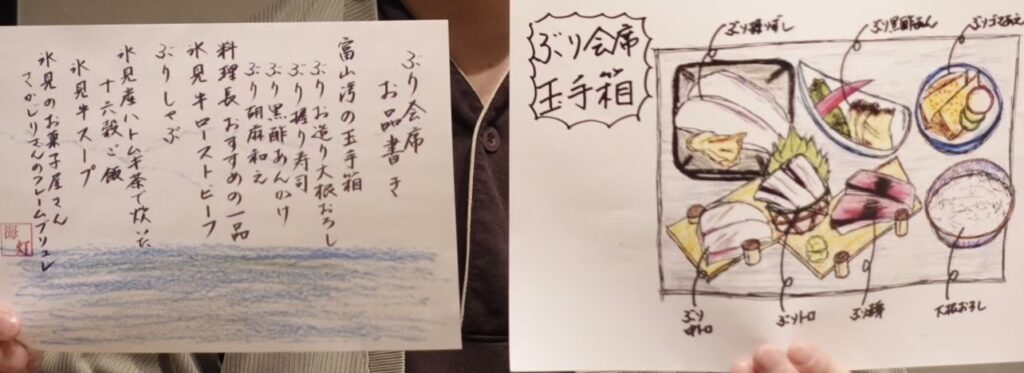 ぶり会席
お品書き
富山湾の玉手箱
ぶりお造り大根おろし
ぶり握り寿司
ぶり黒酢あんかけ
ぶり胡麻和え
料理長おすすめの一品
氷見牛ローストビーフ
ぶりしゃぶ
氷見産ハトムギ茶で炊いた
十六穀ご飯
氷見牛スープ
氷見のお菓子屋さん
さかじりさんのクレームブリュレ
海灯
ぶり会席
玉手箱
ぶり握りずし
ぶり黒酢あん
ぶりゴマあえ
ぶり
中トロ
ぶりトロ
大根おろし